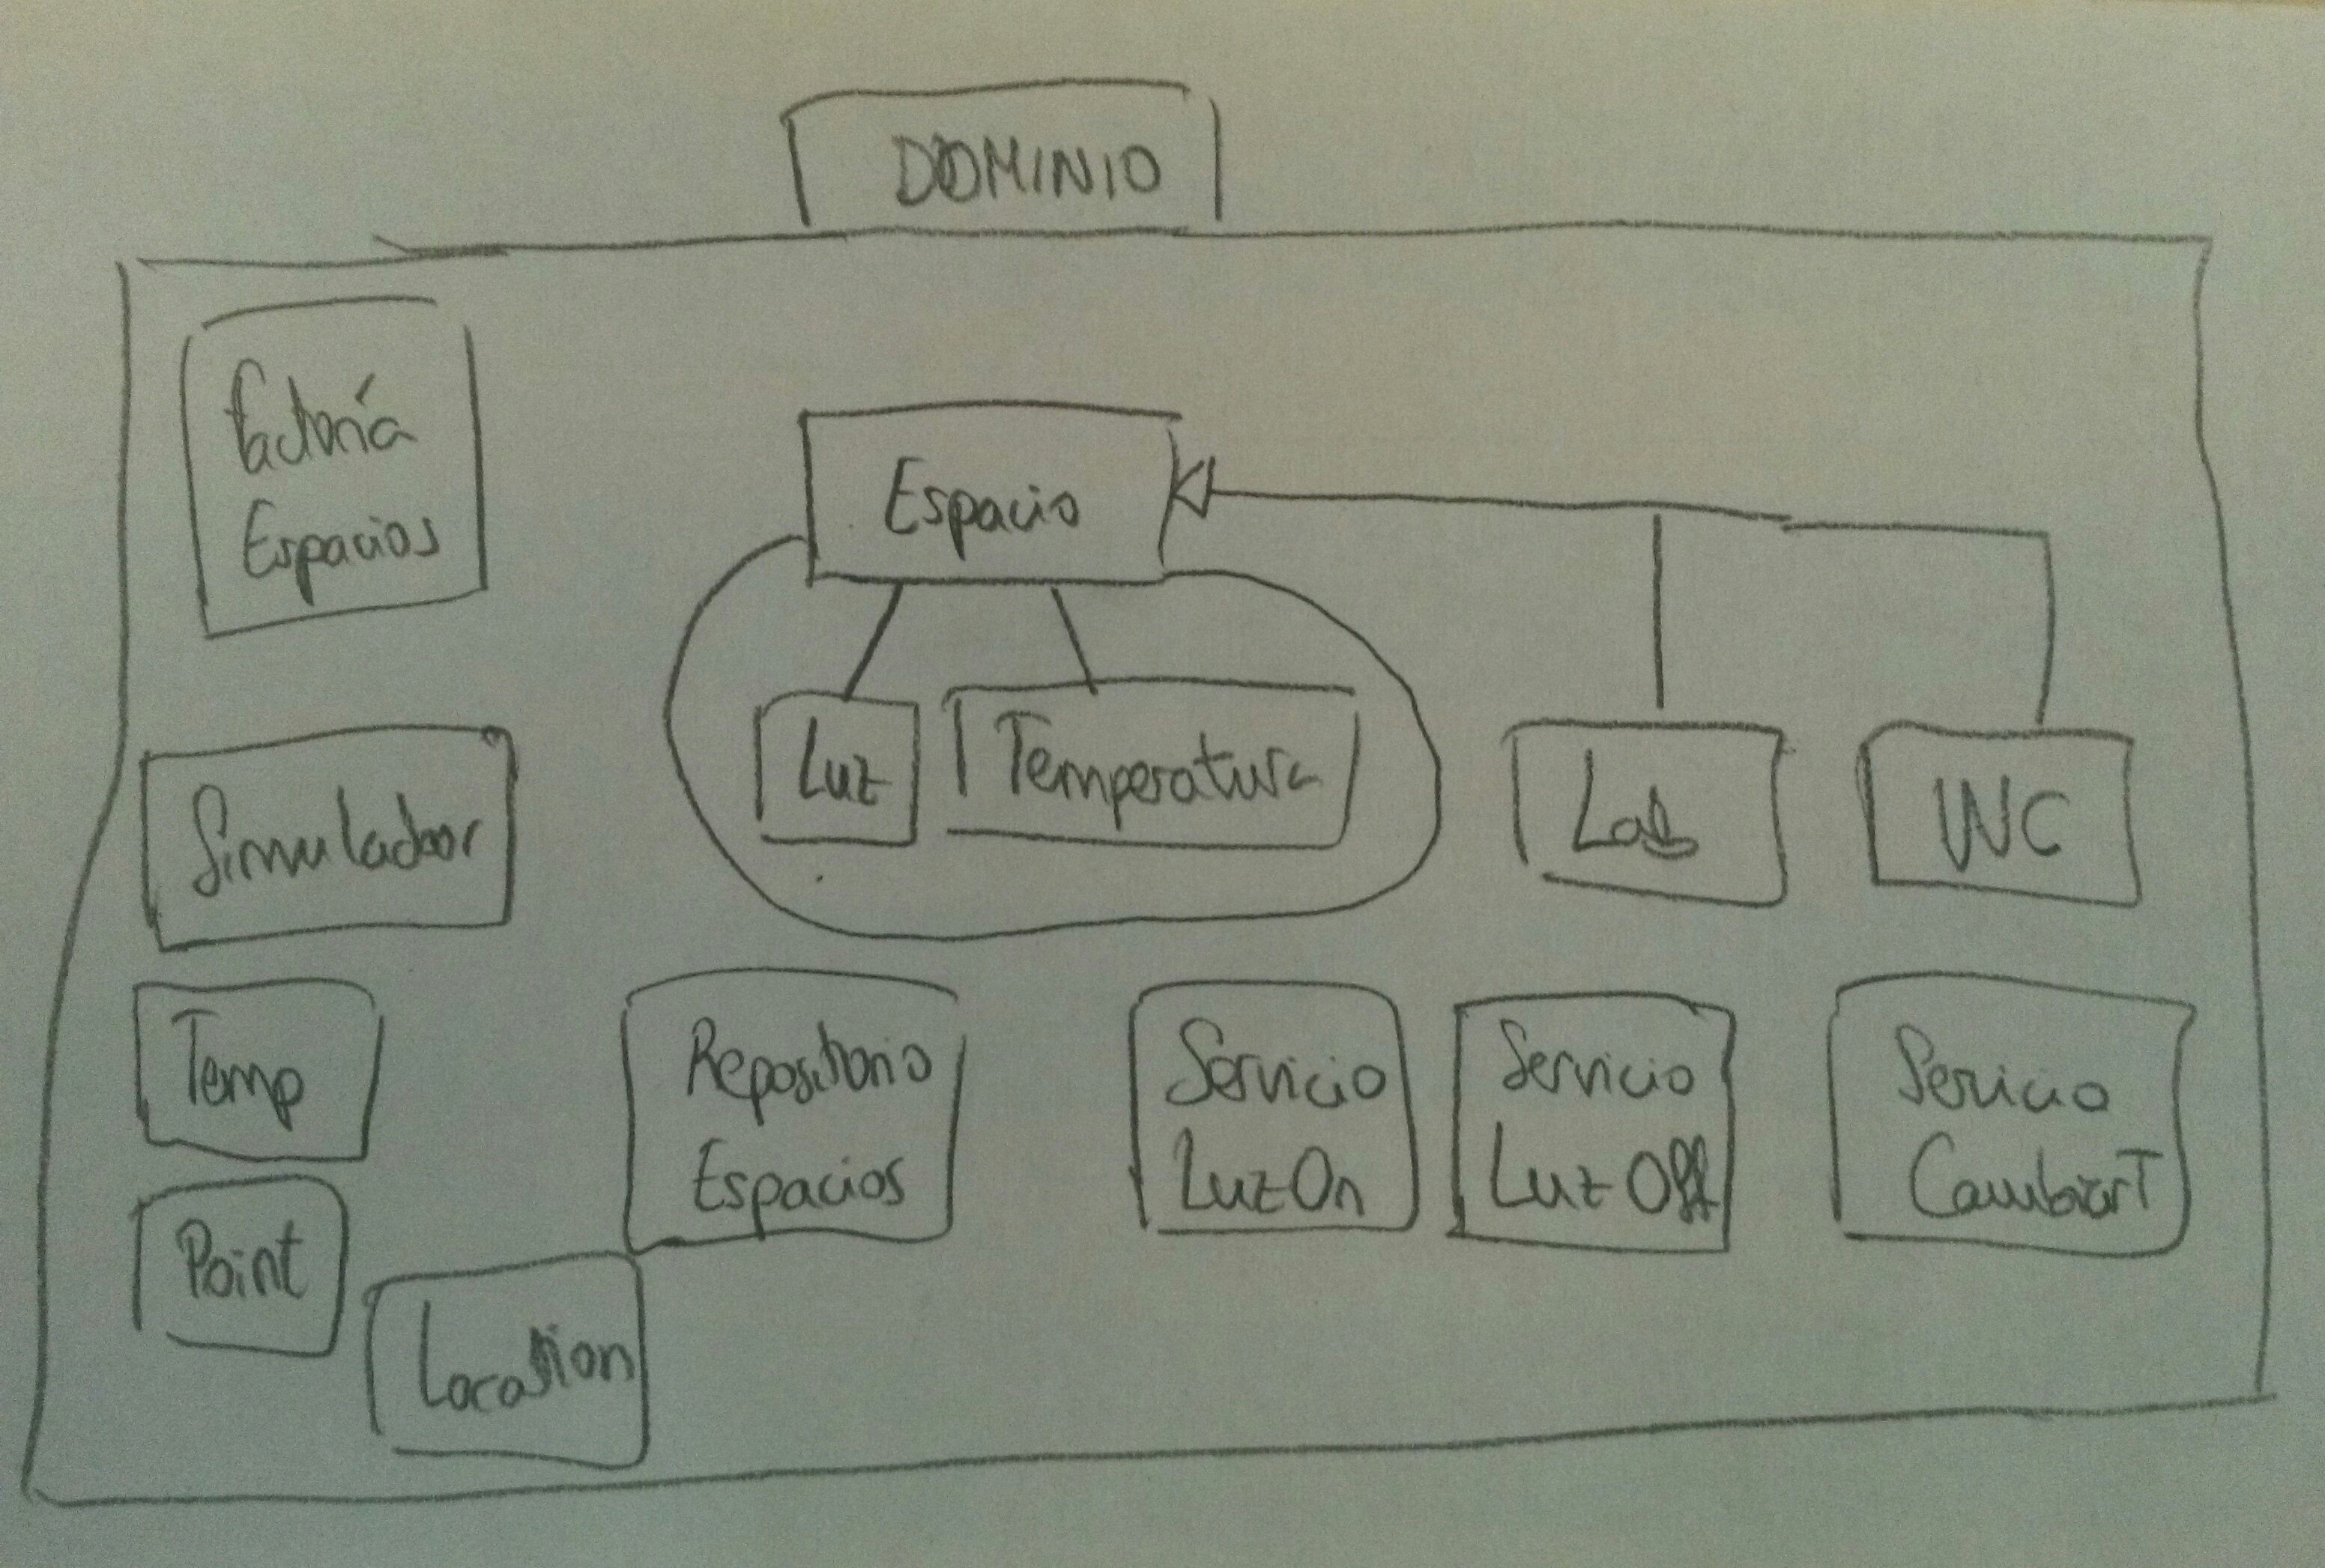 DOMINIO
Factoría
Espacios
Espacio
Luz
Temperatura
Lab
WC
Simulador
Temp
Point
Location
Repositorio
Espacios
Servicio
LuzOn
Servicio
Luz Off
Servicio
CambiarT